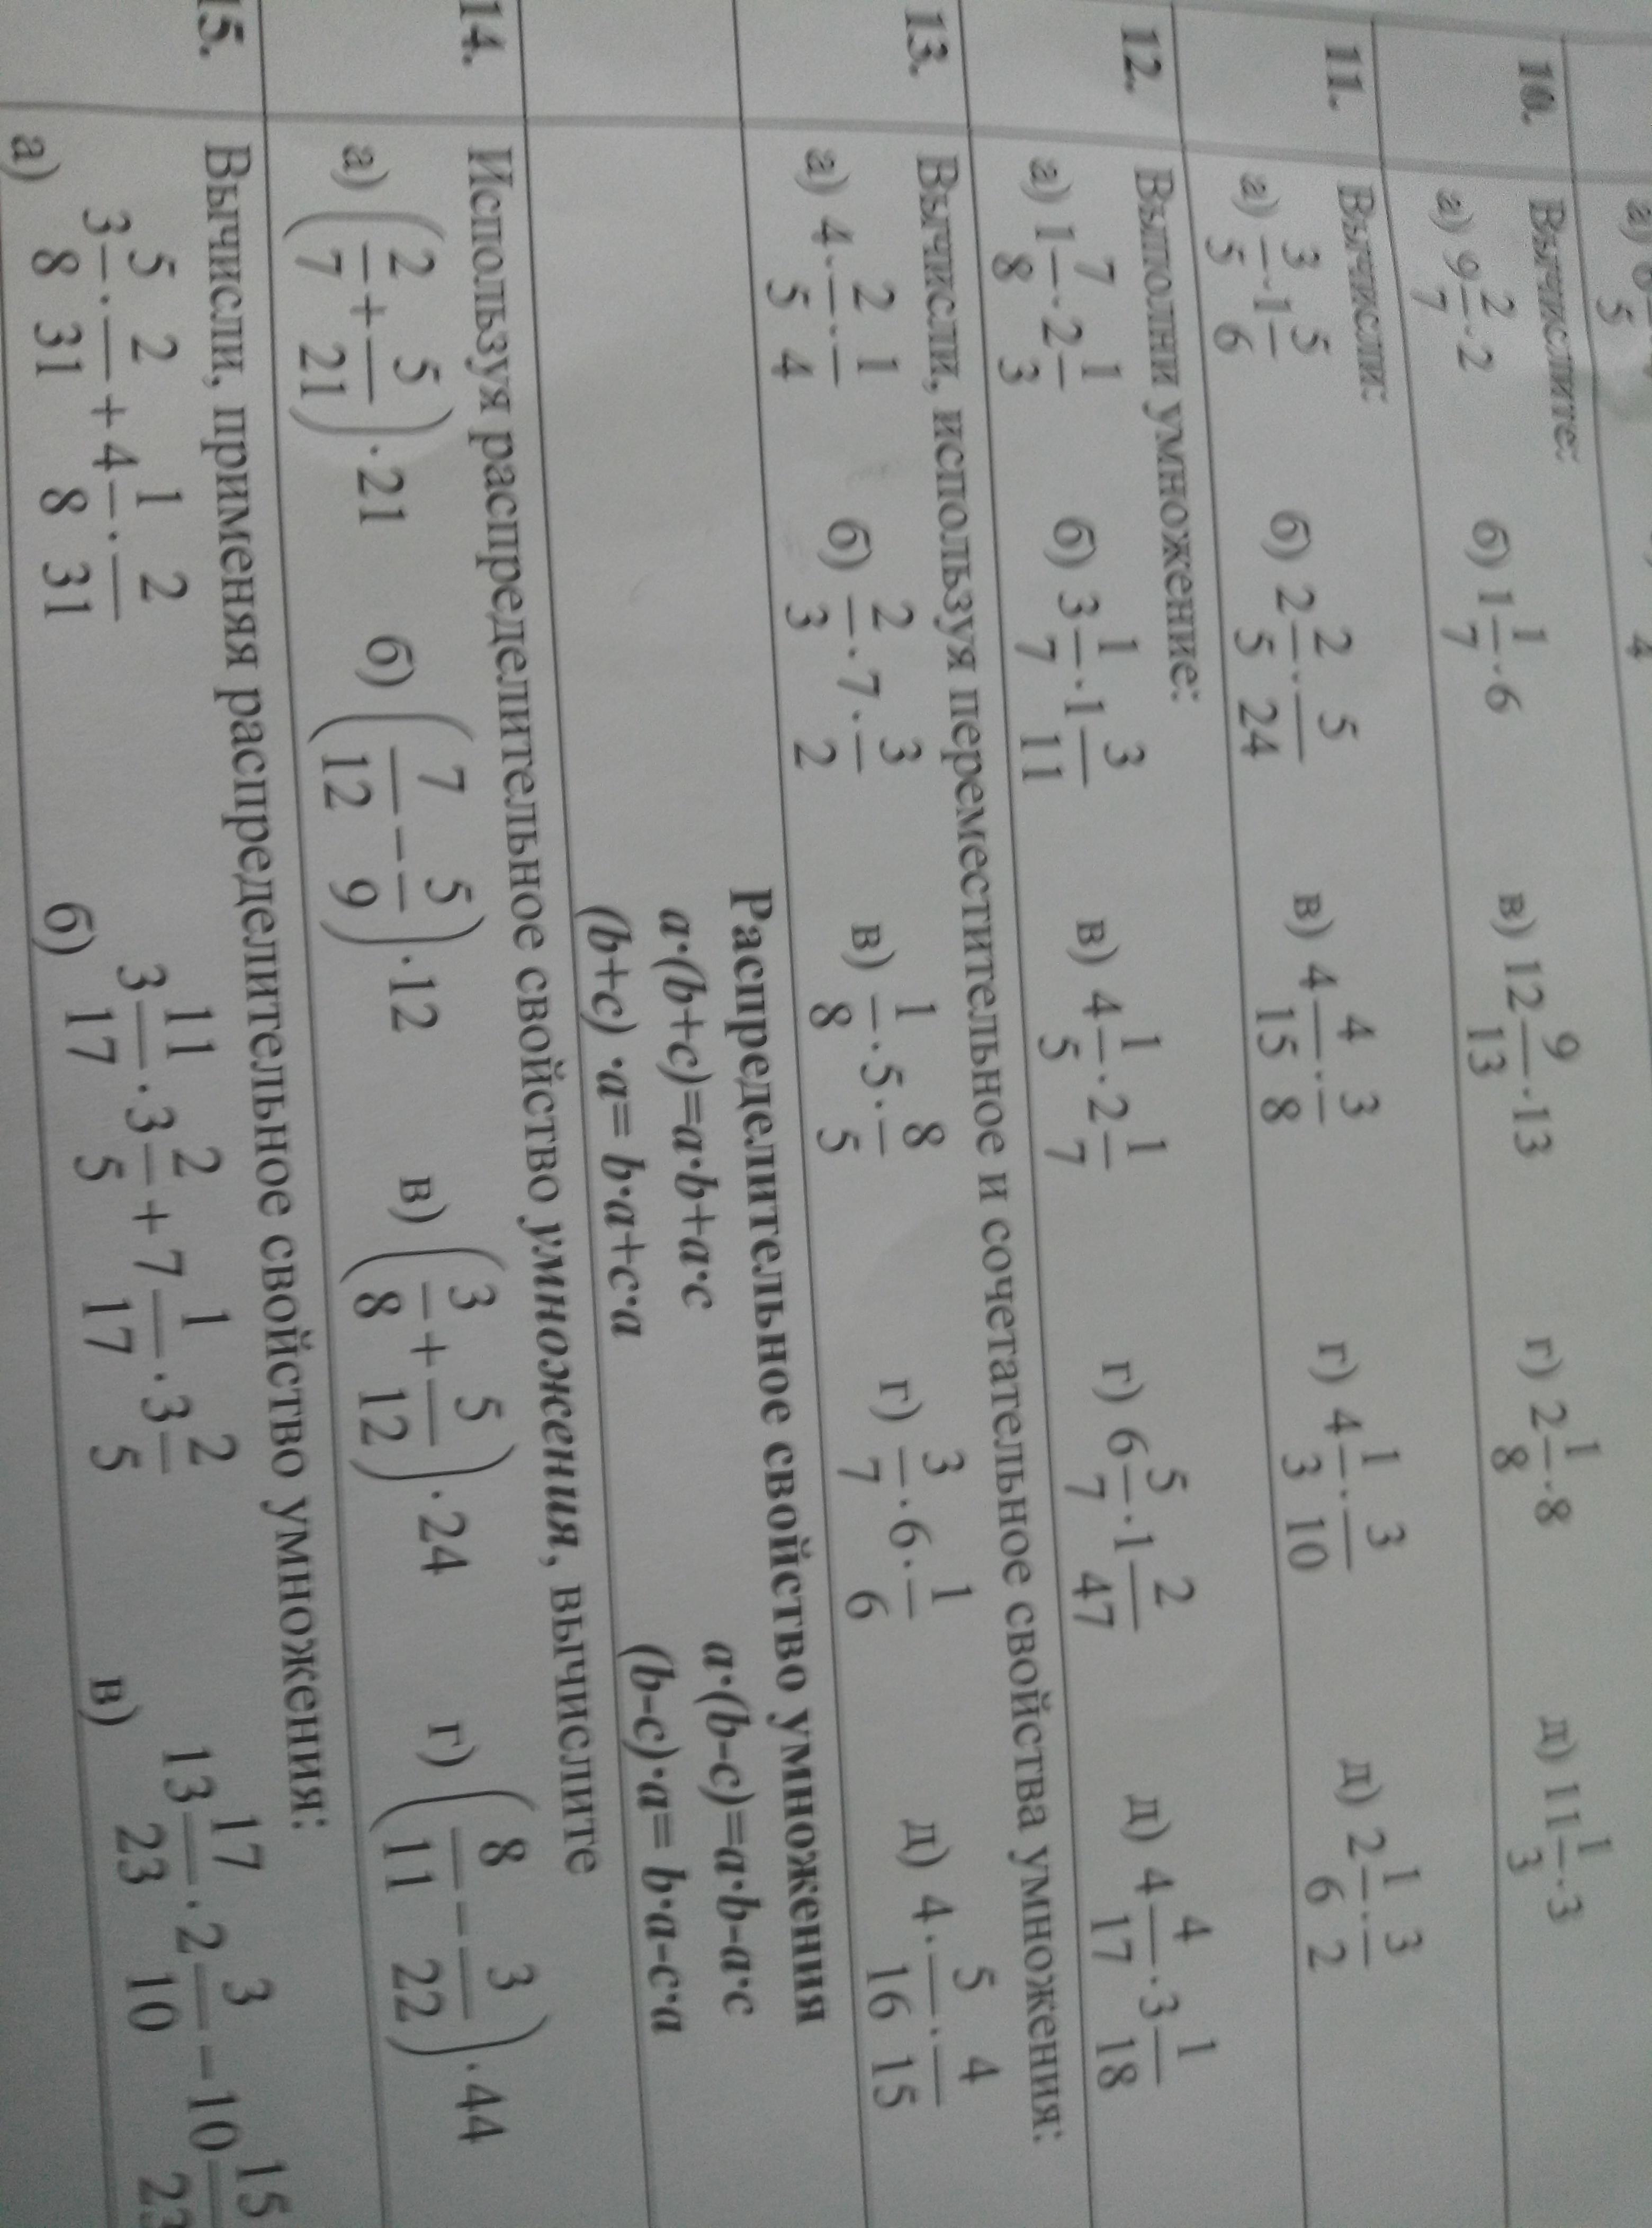 10. Вычислите:
а) 9 2/7 · 2 б) 1 1/7 · 6 в) 12 9/13 · 13 г) 2 1/8 · 8 д) 11 1/3 · 3
11. Вычисли:
а) 3/5 · 1 5/6 б) 2 2/5 · 5/24 в) 4 4/15 · 3/8 г) 4 1/3 · 3/10 д) 2 1/6 · 3/2
12. Выполни умножение:
а) 1 7/8 · 2 1/3 б) 3 1/7 · 1 3/11 в) 4 1/5 · 2 1/7 г) 6 5/7 · 1 2/47 д) 4 4/17 · 3 1/18
13. Вычисли, используя переместительное и сочетательное свойства умножения:
а) 4 · 2/5 · 1/4 б) 2/3 · 7 · 3/2 в) 1/8 · 5 · 8/5 г) 3/7 · 6 · 1/6 д) 4 · 5/16 · 4/15
Распределительное свойство умножения
a·(b+c)=a·b+a·c a·(b-c)=a·b-a·c
(b+c) ·a= b·a+c·a (b-c)·a= b·a-c·a
14. Используя распределительное свойство умножения, вычислите
а) (2/7 + 5/21) · 21 б) (7/12 − 5/9) · 12 в) (3/8 + 5/12) · 24 г) (8/11 − 3/22) · 44
15. Вычисли, применяя распределительное свойство умножения:
а) 3 5/8 · 2/31 + 4 1/8 · 2/31 б) 3 11/17 · 3 2/5 + 7 1/17 · 3 2/5 в) 13 17/23 · 2 3/10 − 10 15/23